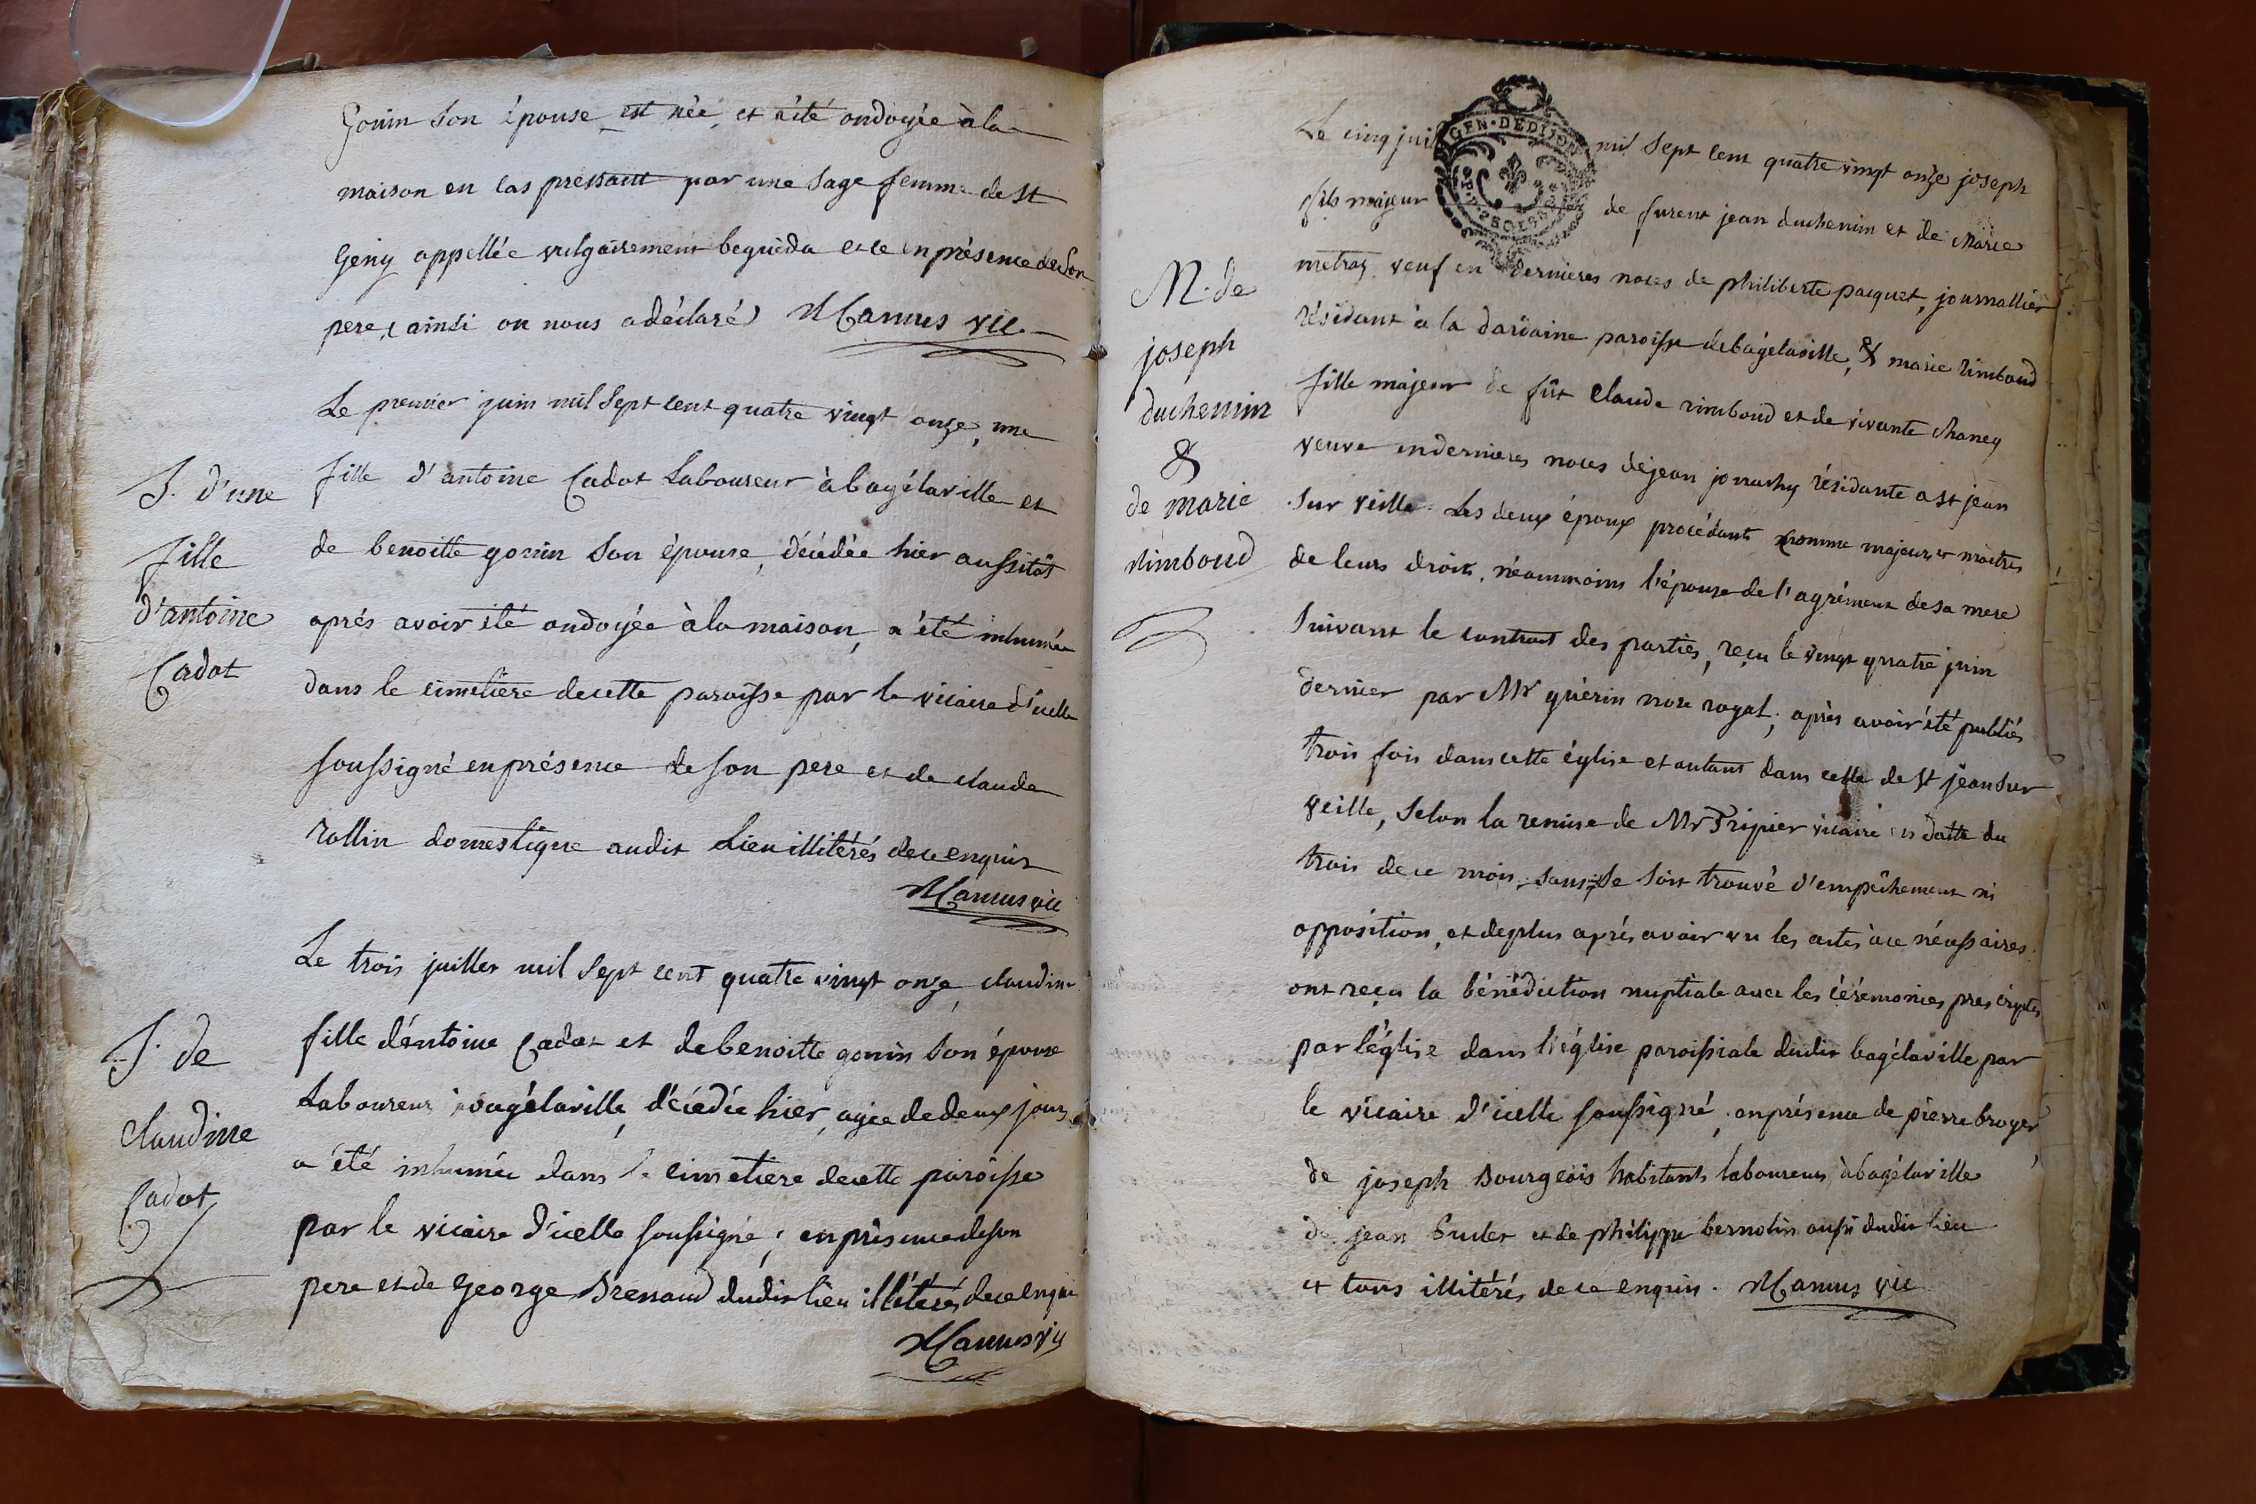 Gonin son épouse est née et a été ondoyée à la
maison en cas préssant par une sage femme de st
Geny appellée vulgairement beguéda et ce en présence de son
pere, (ainsi on nous a déclaré) Mamus vic.
Le premier juin mil sept cent quatre vingt onze, une
fille d'antoine Cadot Laboureur à bagélaville et
de benoitte gonin son épouse, décédée hier aussitôt
aprés avoir été ondoyée à la maison, a été inhumée
dans le cimetiere de cette paroisse par le vicaire d'icelle
soussigné en présence de son pere et de claude
rollin domestique audit Lieu illitérés de ce enquis
Mamus vic
S. d'une
fille
d'antoine
Cadot
Le trois juillet mil sept cent quatre vingt onze, claudine
fille d'éntoine Cadot et de benoitte gonin son épouse
Laboureur bagélaville, décédée hier, agée de deux jours
a été inhumée dans le cimetiere de cette paroisse
par le vicaire d'icelle soussigné, en présence de son
pere et de George Brenaud dudit lieu illitérés de ce enquis
Mamus vic
S. de
claudine
Cadot
GEN. DE DIJON
Le cinq juil mil sept cent quatre vingt onze joseph
fils majeur de furent jean duchemin et de Marie
metraz, veuf en dernieres noces de philiberte paquet, journallier
résidant à la dardaine paroisse de bagélaville, & marie rimboud
fille majeur de fût Claude rimboud et de vivante Chaney
veuve en dernieres noces de jean résidante a st jean
sur veille. Les deux époux procédants comme majeurs et maitres
de leurs droits, néammoins l'épouse de l'agrément de sa mere
suivant le contract des parties, reçu le vingt quatre juin
dernier par Mr guérin nore royal, après avoir été publiés
trois fois dans cette église et autant dans celle de st jean sur
veille, selon la remise de Mr Tripier vicaire en datte du
trois de ce mois, sans se soit trouvé d'empêchement ni
opposition, et de plus aprés avoir vu les actes à ce nécessaires
ont reçu la bénédiction nuptiale avec les cérémonies prescriptes
par l'église dans l'église paroissiale dudit bagélaville par
le vicaire d'icelle soussigné, en présence de pierre broyer
de joseph Bourgeois habitants laboureurs à bagélaville
de jean et de philippe bernolin aussi dudit lieu
et tous illitérés de ce enquis. Mamus vic
M. de
joseph
duchemin
&
de marie
rimboud